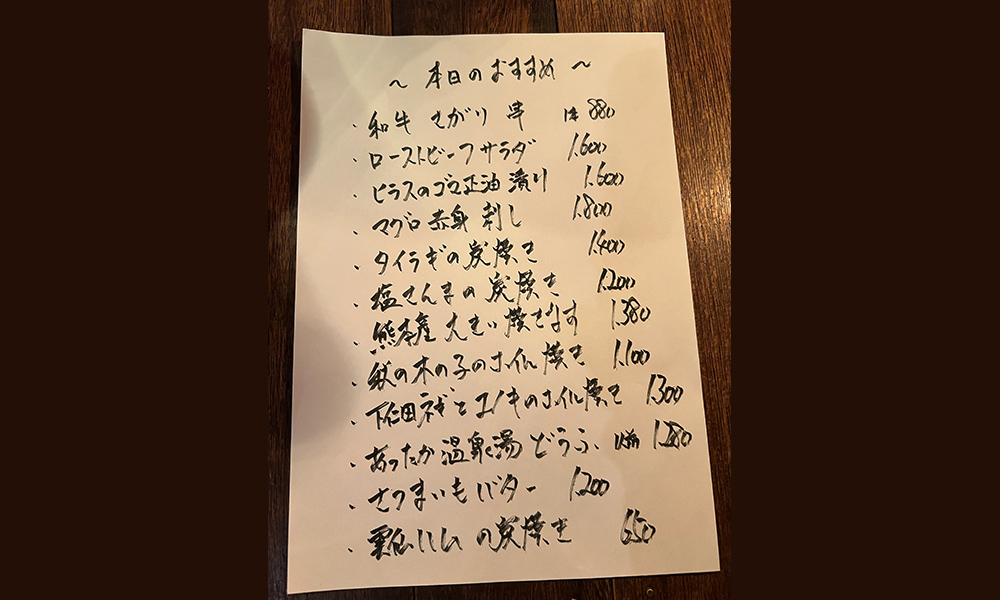 ～ 本日のおすすめ ～
・和牛 さがり 串 1本 880
・ローストビーフサラダ 1.600
・ヒラスのゴマ正油漬け 1.600
・マグロ赤身刺し 1.800
・タイラギの炭焼き 1.400
・塩さんまの炭焼き 1.200
・熊本産 大きい焼きなす 1.380
・秋の木の子のホイル焼き 1.100
・下仁田ネギとエノキのホイル焼き 1.300
・あったか温泉湯どうふ 1人前 1.280
・さつまいもバター 1.200
・雲仙ハムの炭焼き 650